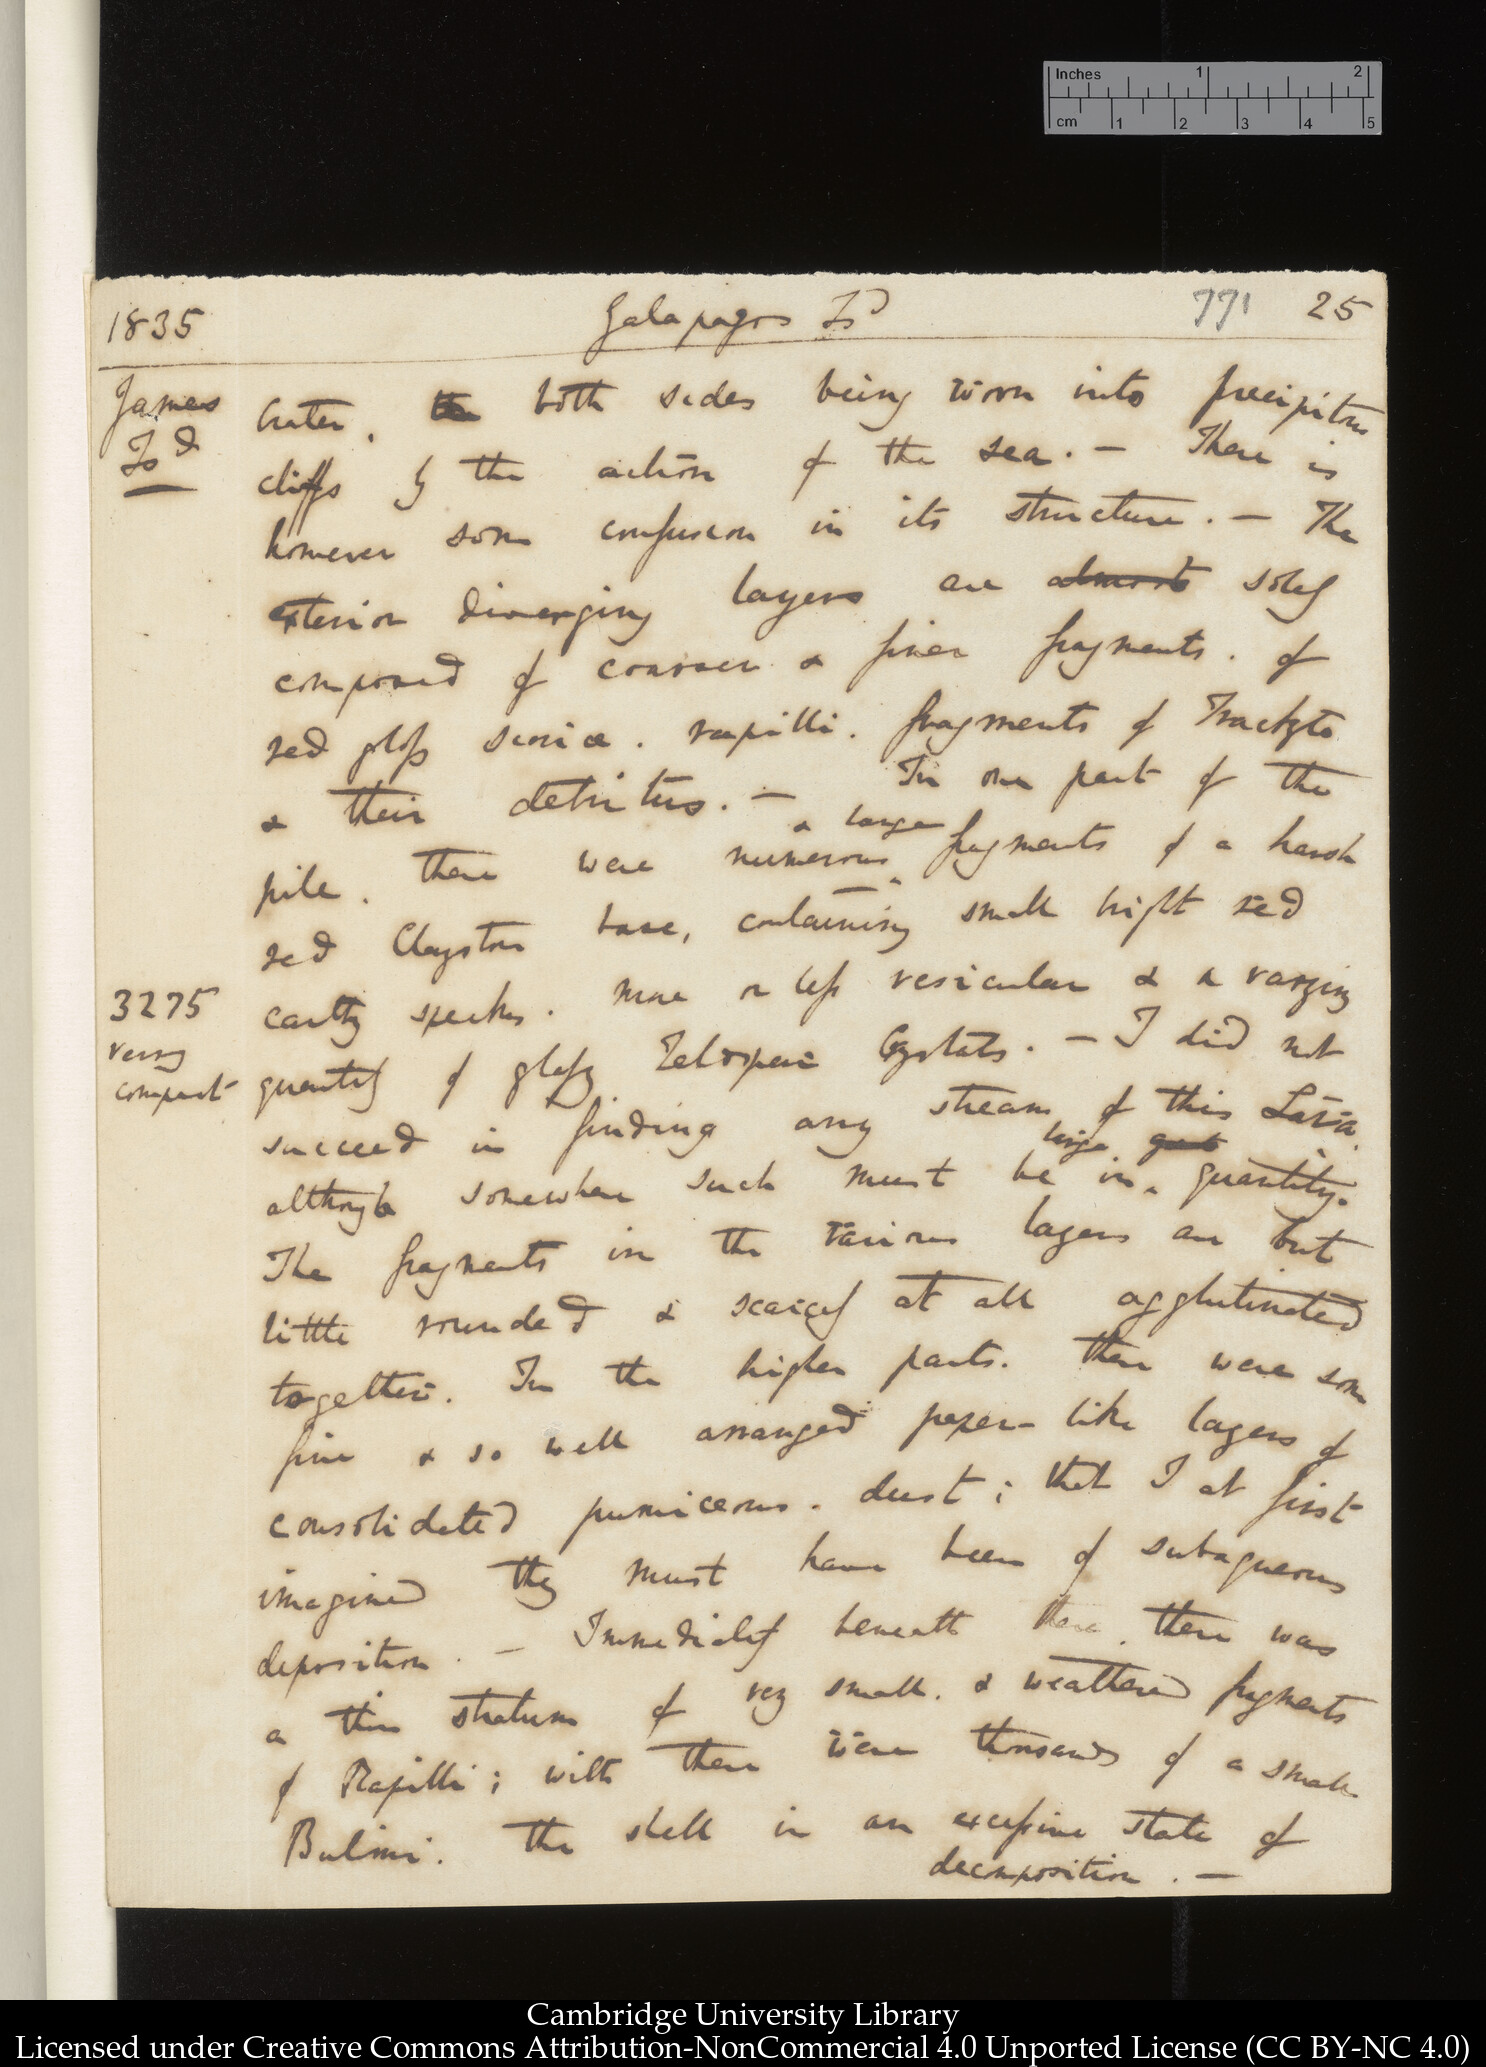 Inches 1 2
cm 1 2 3 4 5
1835 Galapagos Is^d 771 25
James
Is^d
Crater, the both sides being worn into precipitous
cliffs by the action of the sea. — There is
however some confusion in its structure. — The
exterior diverging layers are almost solely
composed of coarser & finer fragments. of
red gloss scoriæ. rapilli. fragments of Trachyte
& their detritus. — In one part of the
pile. there were numerous & large fragments of a harsh
red Claystone base, containing small bright red
3275
very
compact
earthy specks. more or less vesicular & a varying
quantity of glassy Feldspar Crystals. — I did not
succeed in finding any stream of this Lava.
although somewhere such must be in large quantity.
The fragments in the various layers are but
little rounded & scarcely at all agglutinated
together. In the higher parts. there were some
fine & so well arranged paper-like layers of
consolidated pumiceous. dust; that I at first
imagined they must have been of subaqueous
deposition. — Immediately beneath these. there was
a thin stratum of very small. & weathered fragments
of Rapilli; with these were thousands of a small
Bulimi. the shell in an excessive state of
decomposition. —
Cambridge University Library
Licensed under Creative Commons Attribution-NonCommercial 4.0 Unported License (CC BY-NC 4.0)